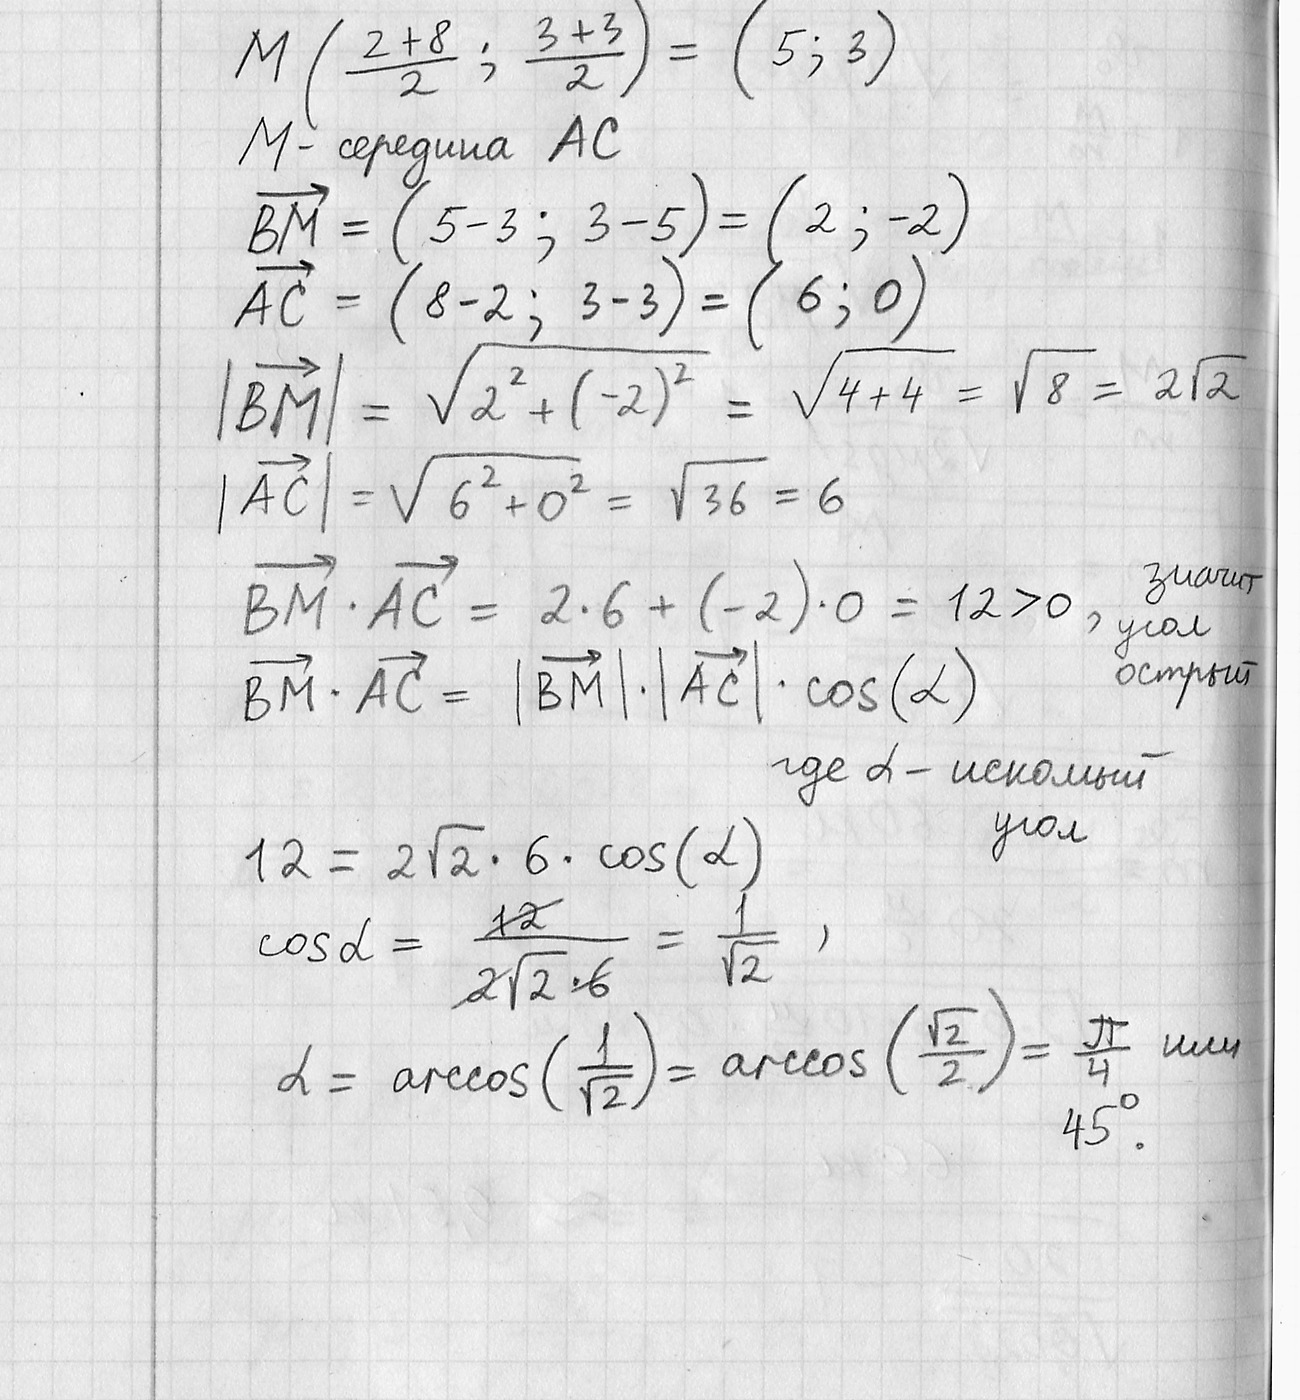 M((2+8)/2; (3+3)/2) = (5; 3)
M - середина AC
BM⃗ = (5-3; 3-5) = (2; -2)
AC⃗ = (8-2; 3-3) = (6; 0)
|BM⃗| = √(2² + (-2)²) = √(4+4) = √8 = 2√2
|AC⃗| = √(6² + 0²) = √36 = 6
BM⃗ · AC⃗ = 2·6 + (-2)·0 = 12 > 0, значит
угол
острый
BM⃗ · AC⃗ = |BM⃗| · |AC⃗| · cos(α)
где α - искомый
угол
12 = 2√2 · 6 · cos(α)
cos α = 12/(2√2·6) = 1/√2,
α = arccos(1/√2) = arccos(√2/2) = π/4 или
45°.